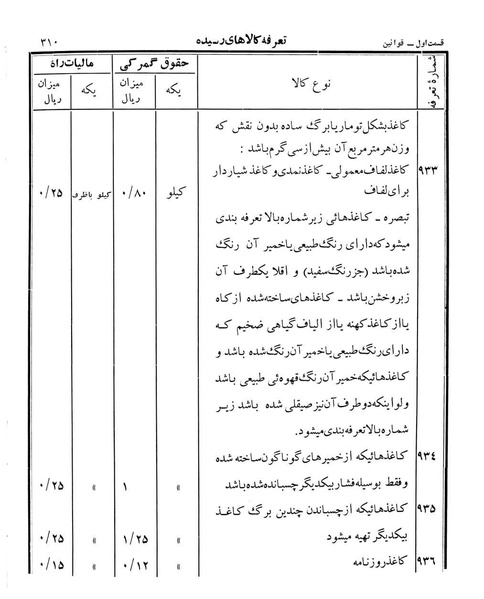 قسمت اول ــ قوانین
تعرفه کالاهای رسیده
۳۱۰
شمارهٔ تعرفه
نوع کالا
حقوق گمرکی
مالیات راه
یکه
میزان ریال
یکه
میزان ریال
کاغذ بشکل تومار یا برگ ساده بدون نقش که
وزن هر متر مربع آن بیش از سی گرم باشد :
۹۳۳ کاغذ لفاف معمولی ــ کاغذ نمدی و کاغذ شیاردار
برای لفاف کیلو ۰/۸۰ کیلو باظرف ۰/۲۵
تبصره ــ کاغذهائی زیر شماره بالا تعرفه بندی
میشود که دارای رنگ طبیعی یا خمیر آن رنگ
شده باشد (جز رنگ سفید) و اقلا یکطرف آن
زبر و خشن باشد ــ کاغذهای ساخته شده از کاه
یا از کاغذ کهنه یا از الیاف گیاهی ضخیم که
دارای رنگ طبیعی یا خمیر آن رنگ شده باشد و
کاغذهائیکه خمیر آن رنگ قهوه ئی طبیعی باشد
ولو اینکه دو طرف آن نیز صیقلی شده باشد زیر
شماره بالا تعرفه بندی میشود.
۹۳۴ کاغذهائیکه از خمیرهای گوناگون ساخته شده
و فقط بوسیله فشار بیکدیگر چسبانده شده باشد » ۱ » ۰/۲۵
۹۳۵ کاغذهائیکه از چسباندن چندین برگ کاغذ
بیکدیگر تهیه میشود » ۱/۲۵ » ۰/۲۵
۹۳۶ کاغذ روزنامه » ۰/۱۲ » ۰/۱۵